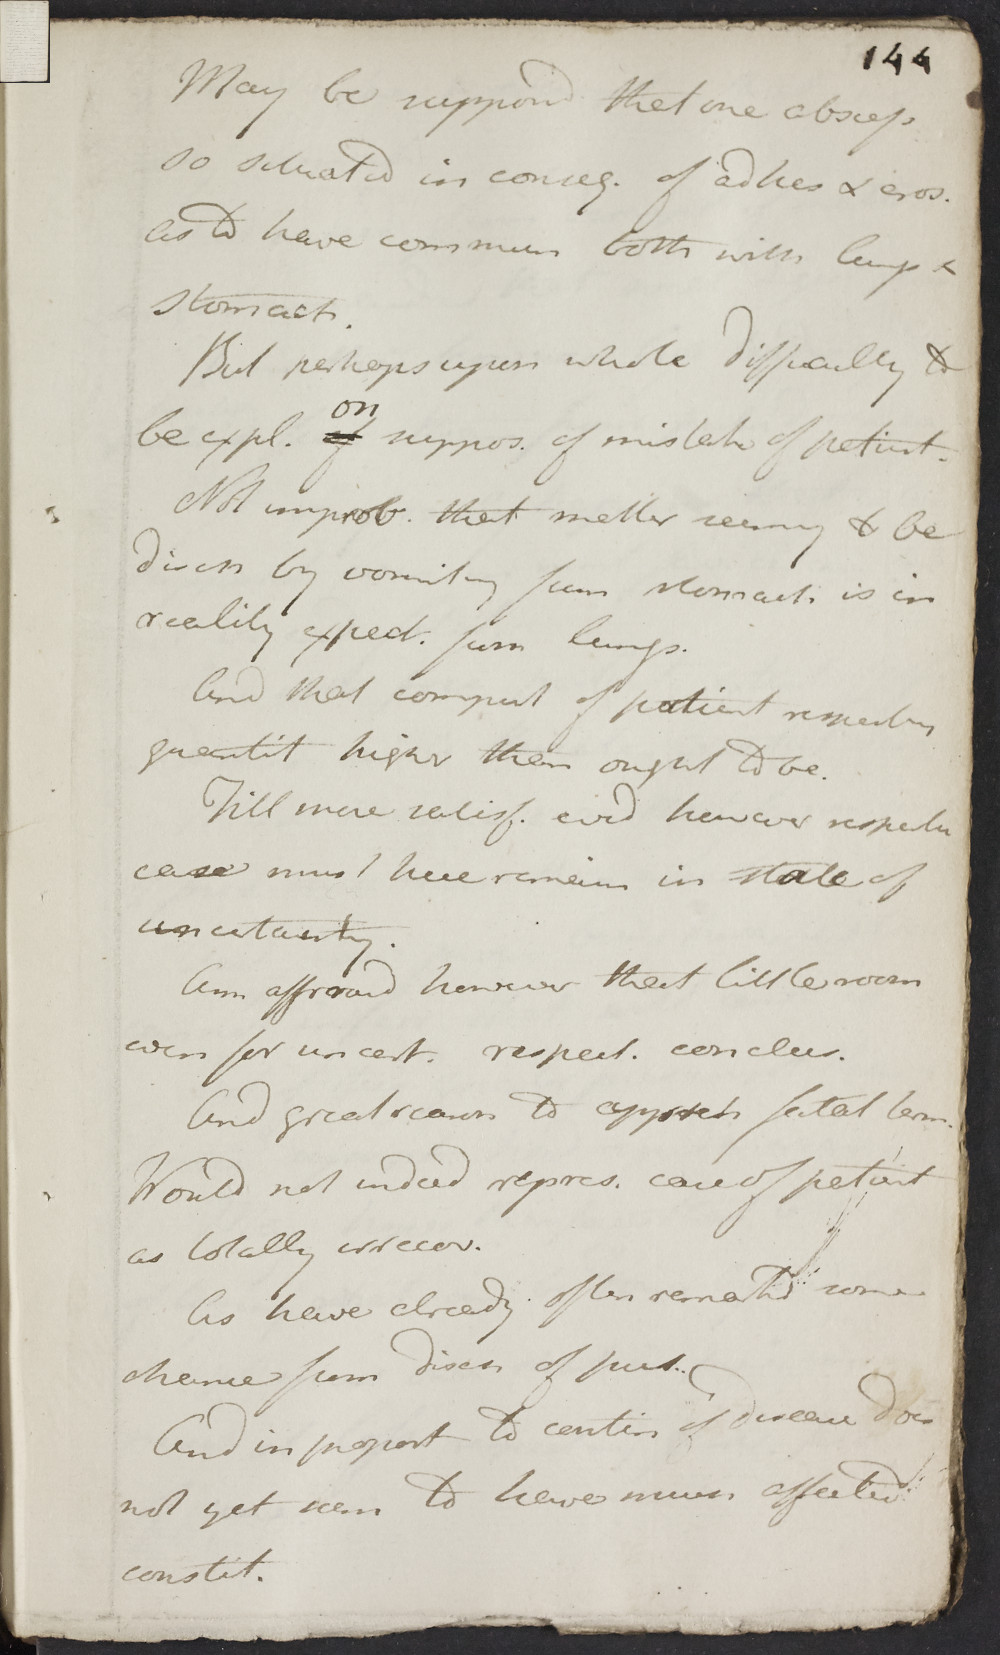 144
May be suppos'd that one abscess
so situated in conseq. of adhes & eros.
as to have commun both with lungs &
stomach.
But perhaps upon whole difficulty to
be expl. on suppos. of mistake of patient.
Not improb. that matter seeming to be
disch by vomiting from stomach is in
reality expect. from lungs.
And that comput of patient respecting
quantit higher than ought to be.
Till more satisf. evid however respecting
case must here remain in state of
uncertainty.
Am affraid however that little room
even for uncert. respect. conclus.
And great reason to appreh fatal term.
Would not indeed repres. case of patient
as totally irrecov.
As have already often remark'd some
chance from disch of pus.
And in proport to contin of disease does
not yet seem to have much affected
constit.